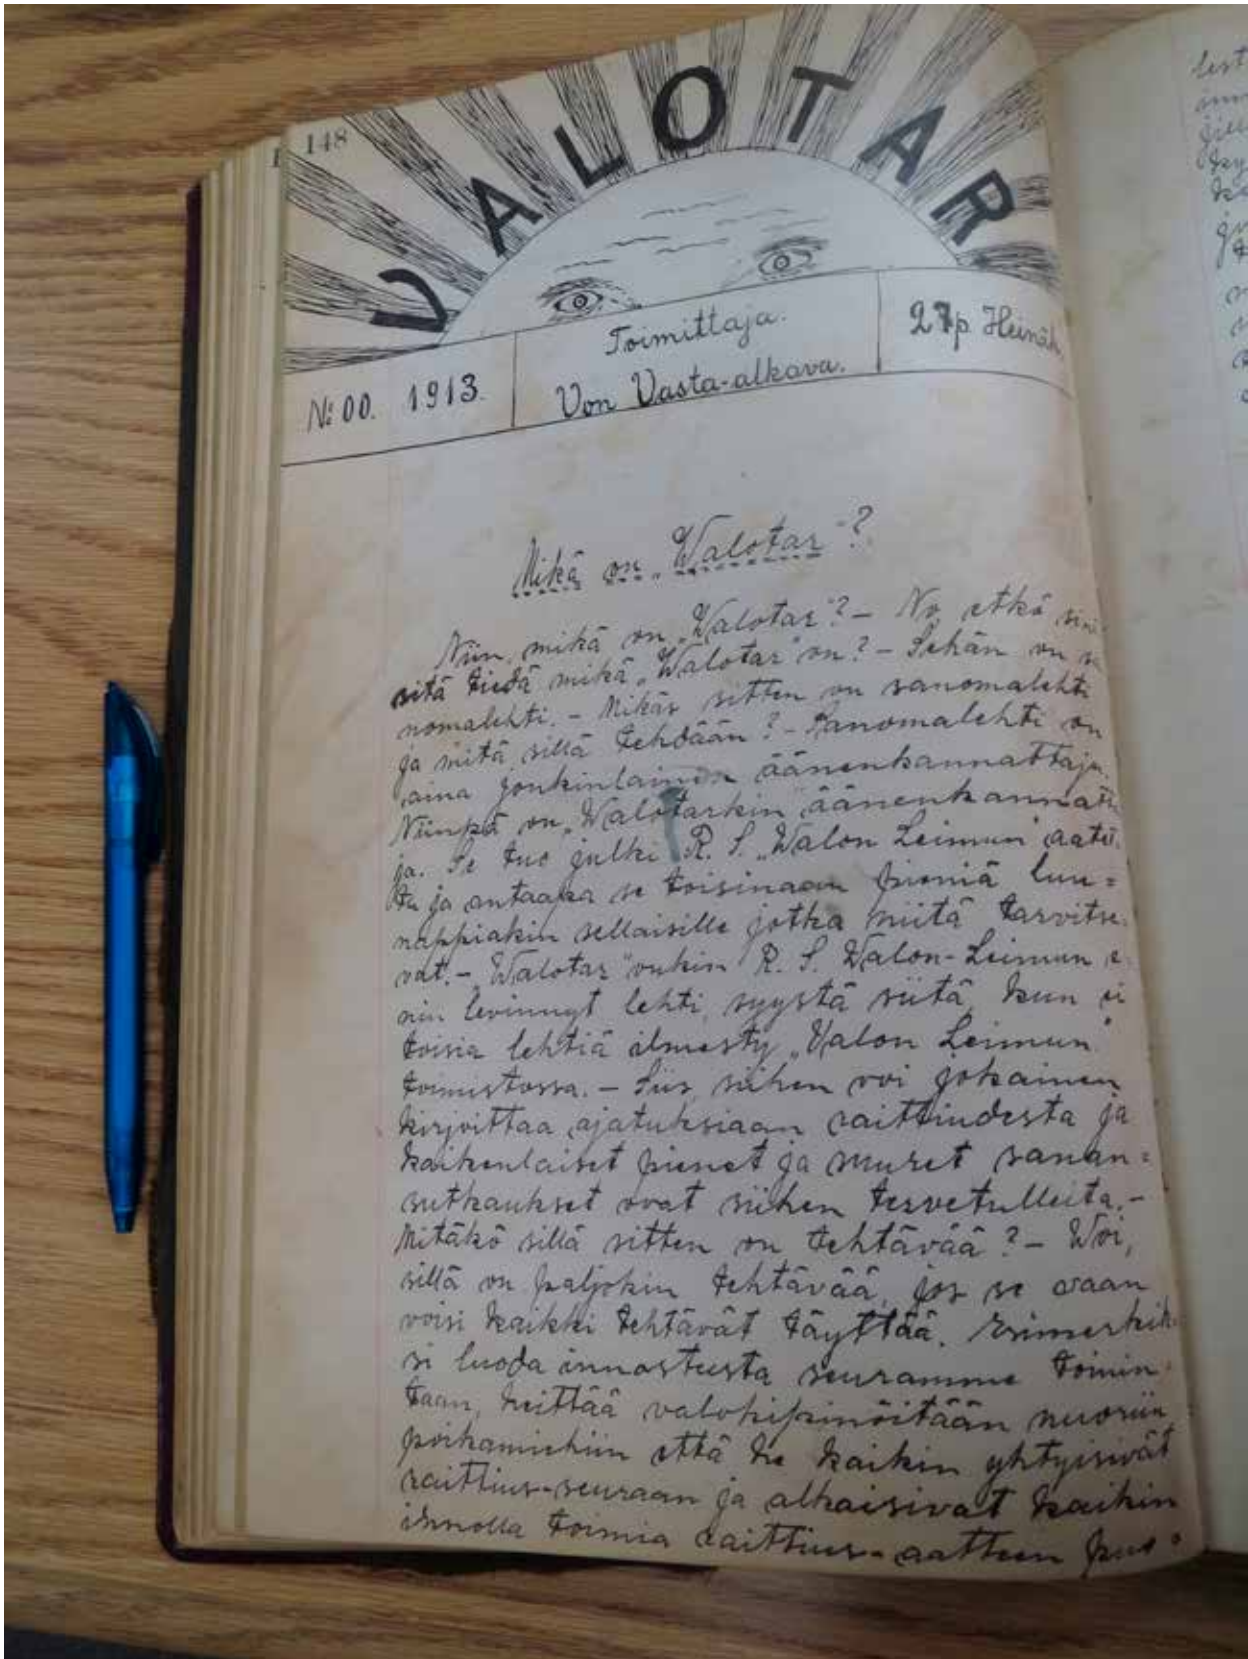 148
VALOTAR
N: 00. 1913.
Toimittaja.
Von Vasta-alkava.
27p Heinäk.
Mikä on „Walotar"?
Niin, mikä on „Walotar"? – No etkö sinä
sitä tiedä mikä „Walotar" on? – Sehän on sa
nomalehti. – Mikäs sitten on sanomalehti
ja mitä sillä tehdään? – Sanomalehti on
aina jonkinlainen äänenkannattaja.
Niinpä on „Walotarkin" äänenkannatta
ja. Se tuo julki R. S. „Walon Leimun" aatei
ta ja antaapa se toisinaan pieniä luu=
nappiakin sellaisille jotka niitä tarvitse
vat. – „Walotar" onkin R. S. Walon-Leimun e
nin levinnyt lehti, syystä siitä, kun ei
toisia lehtiä ilmesty „Valon Leimun"
toimistossa. – Siis, siihen voi jokainen
kirjoittaa ajatuksiaan raittiudesta ja
kaikenlaiset pienet ja suuret sanan=
sutkaukset ovat siihen tervetulleita. –
Mitäkö sillä sitten on tehtävää? – Woi,
sillä on paljokin tehtävää, jos se vaan
voisi kaikki tehtävät täyttää. Esimerkik=
si luoda innostusta seuramme toimin=
taan, heittää valokipinöitään nuoriin
poikamiehiin että he kaikin yhtyisivät
raittius-seuraan ja alkaisivat kaikin
innolla toimia raittius-aatteen puo=